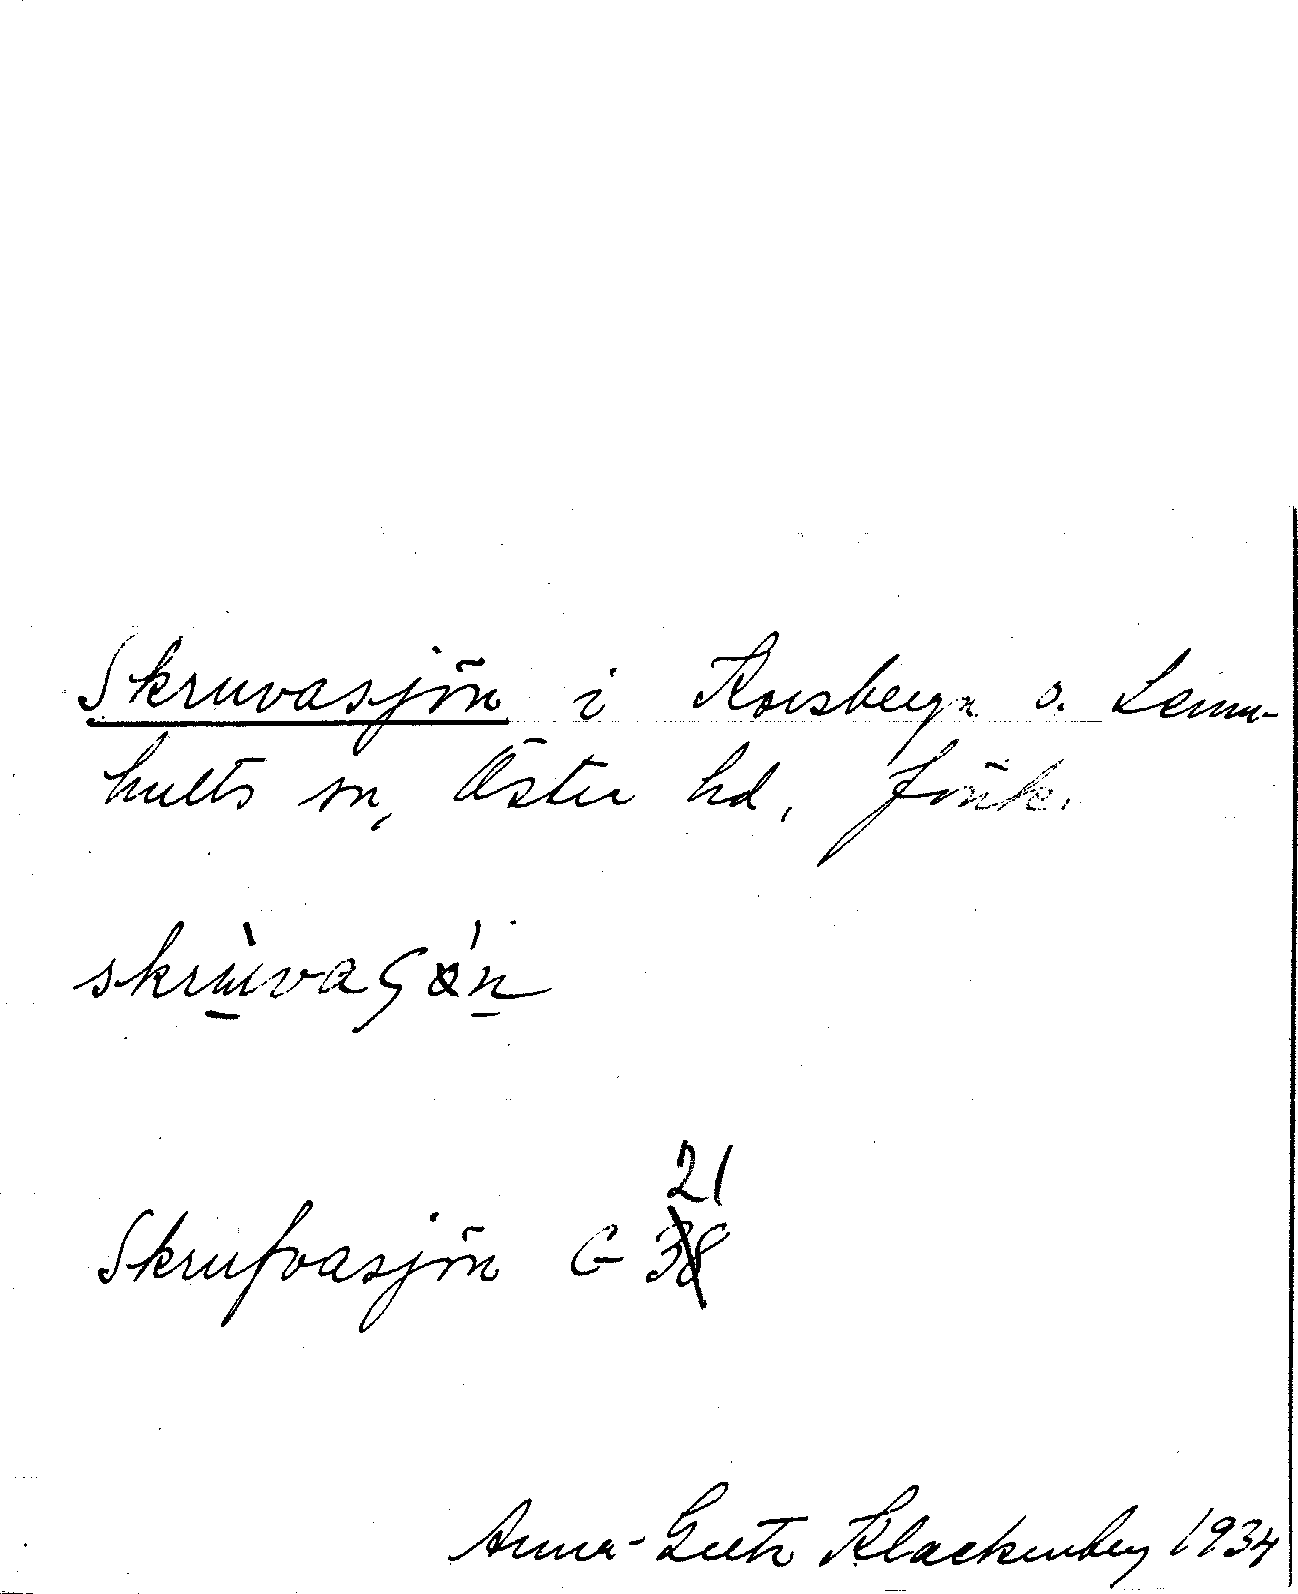 Skruvasjön i Korsberga o. Lemn-
hults sn, Öster hd, Jönk.
skrùvaʃǿn
21
Skrufvasjön G 38
Anna-Greta Klackenberg 1934